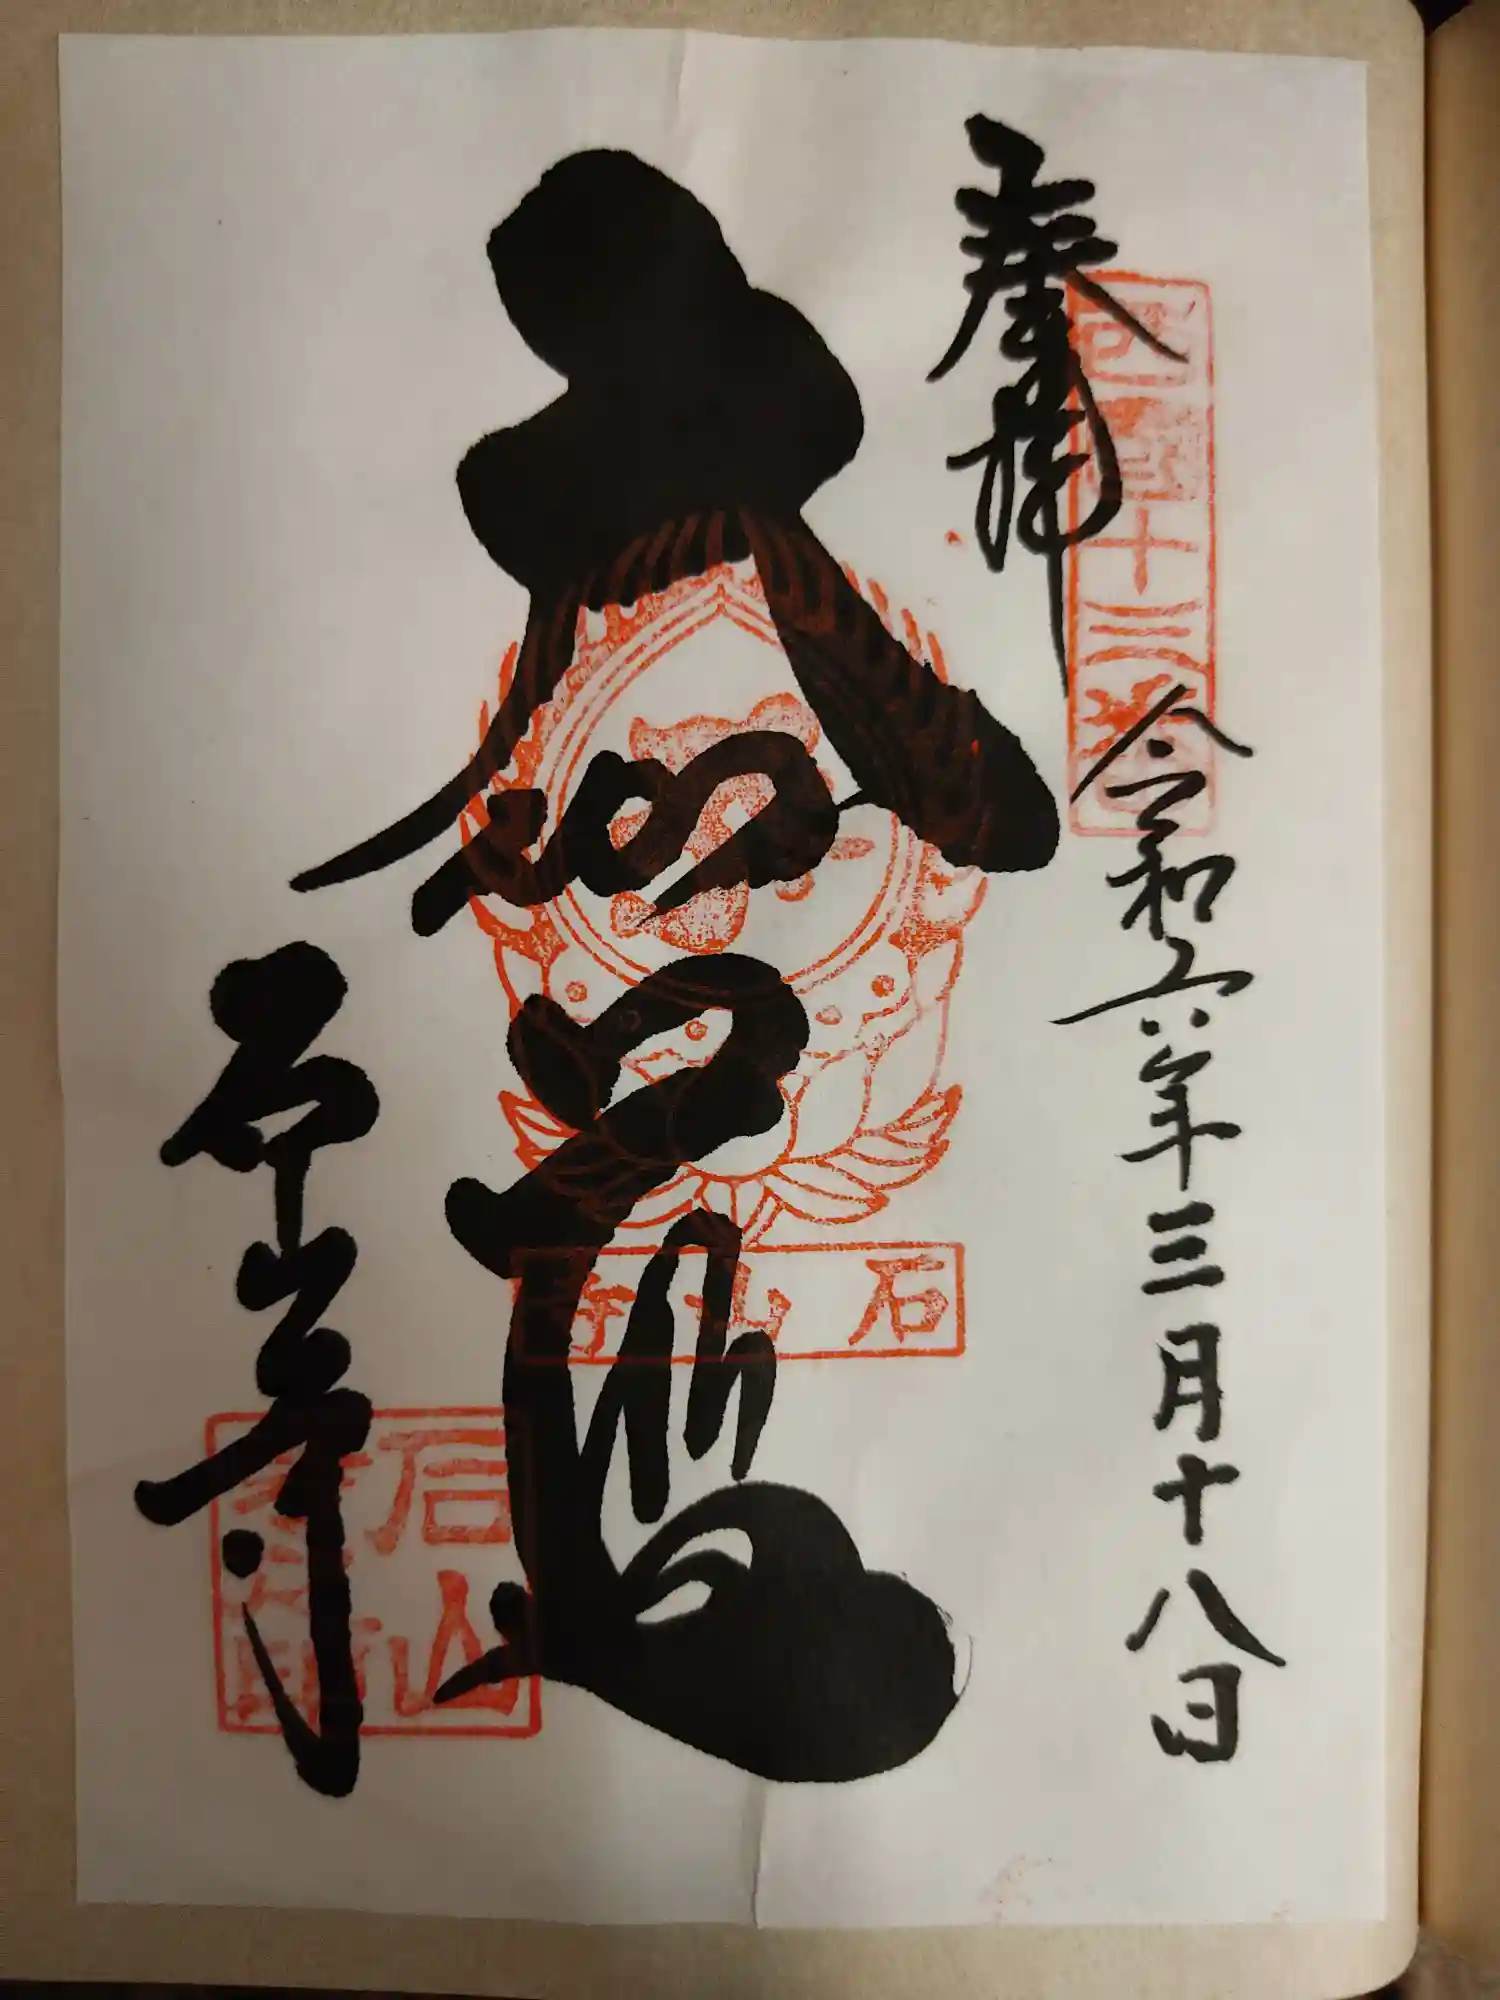 奉拝
西国十三番
令和六年三月十八日
大伽藍
石山寺
石山寺
石山寺